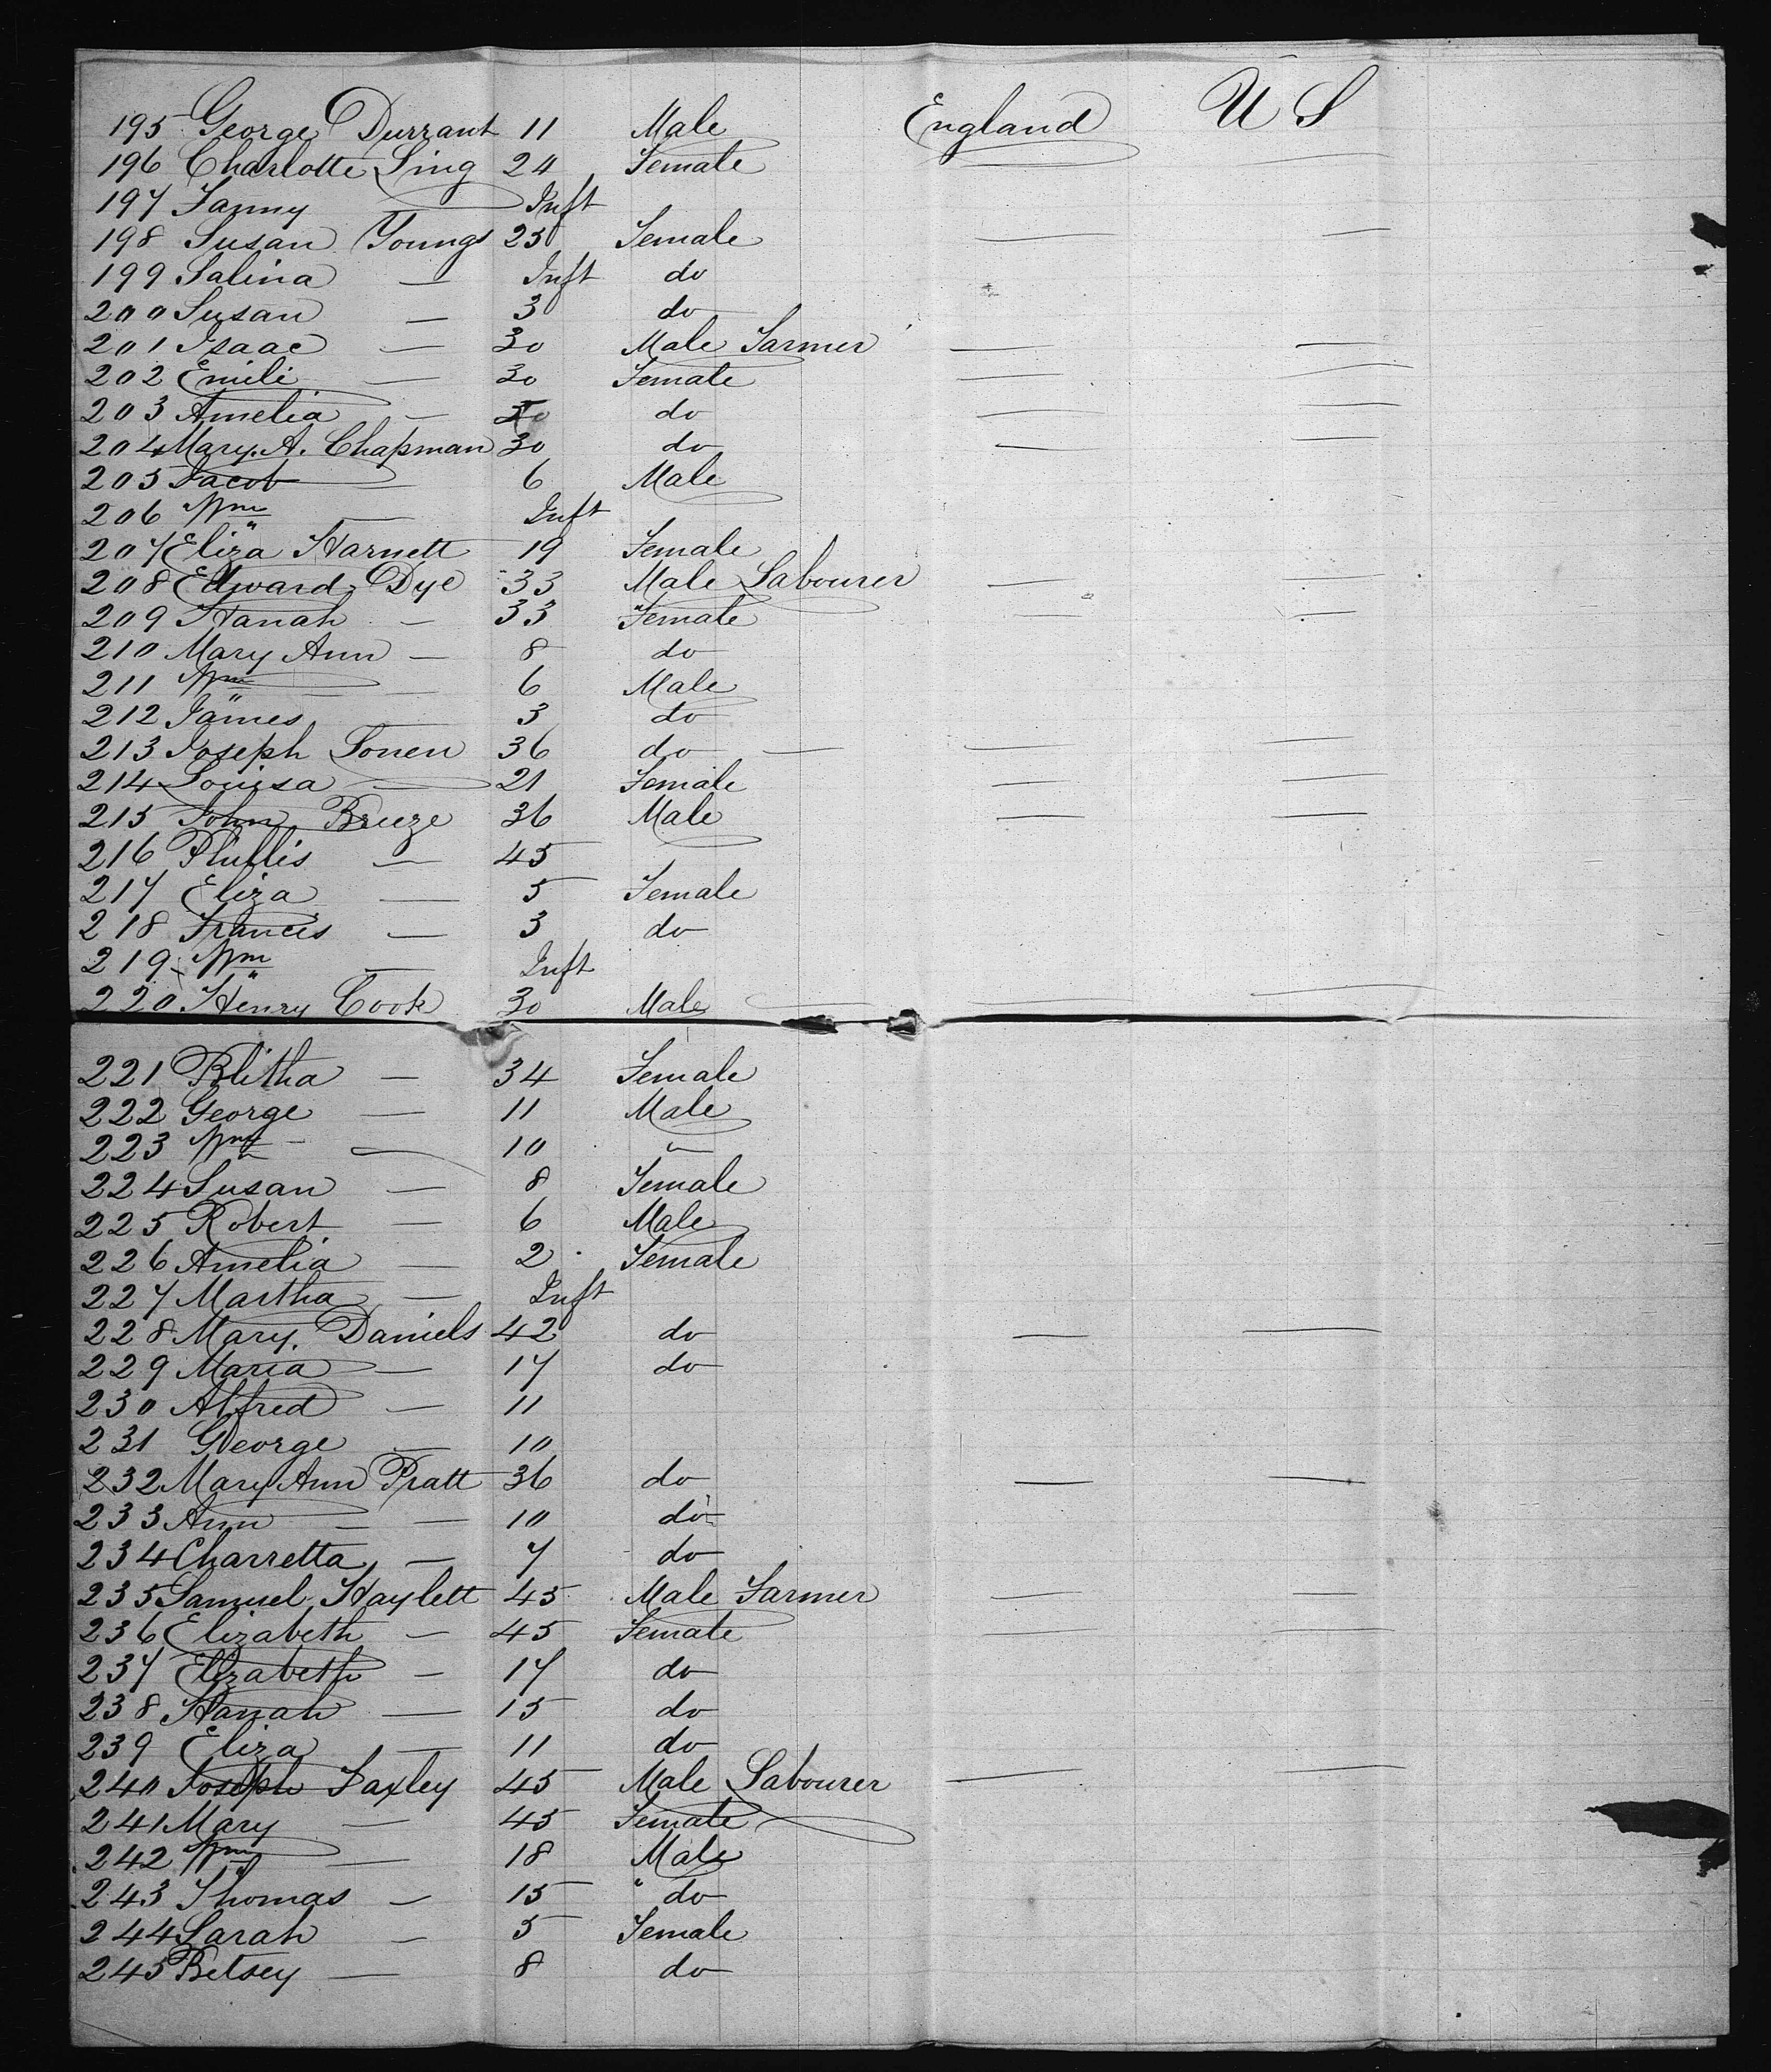 195 George Durrant 11 Male England U S
196 Charlotte Ling 24 Female — —
197 Fanny — Inft
198 Susan Youngs 25 Female — —
199 Salina — Inft do
200 Susan — 3 do
201 Isaac — 30 Male Farmer — —
202 Emili — 30 Female — —
203 Amelia — do — —
204 Mary. A. Chapman 30 do — —
205 Jacob — 6 Male
206 Wm — Inft
207 Eliza Harnett 19 Female
208 Edward Dye 33 Male Labourer — —
209 Hanah — 33 Female — —
210 Mary Ann — 8 do
211 Wm — 6 Male
212 James — 3 do
213 Joseph Sonen 36 do — — —
214 Louisa — 21 Female — —
215 John Breeze 36 Male — —
216 Phillis — 45
217 Eliza — 5 Female
218 Francis — 3 do
219 Wm — Inft
220 Henry Cook 30 Male — — —
221 Blitha — 34 Female
222 George — 11 Male
223 Wm — 10 "
224 Susan — 8 Female
225 Robert — 6 Male
226 Amelia — 2 Female
227 Martha — Inft
228 Mary Daniels 42 do — —
229 Maria — 17 do
230 Alfred — 11
231 George — 10
232 Mary Ann Pratt 36 do — —
233 Ann — — 10 do
234 Charretta — 7 do
235 Samuel Haylett 45 Male Farmer — —
236 Elizabeth — 45 Female — —
237 Elizabeth — 17 do
238 Hanah — 15 do
239 Eliza — 11 do
240 Joseph Faxley 45 Male Labourer — —
241 Mary — 45 Female
242 Wm — 18 Male
243 Thomas — 15 " do
244 Sarah — 5 Female
245 Betsey — 8 do